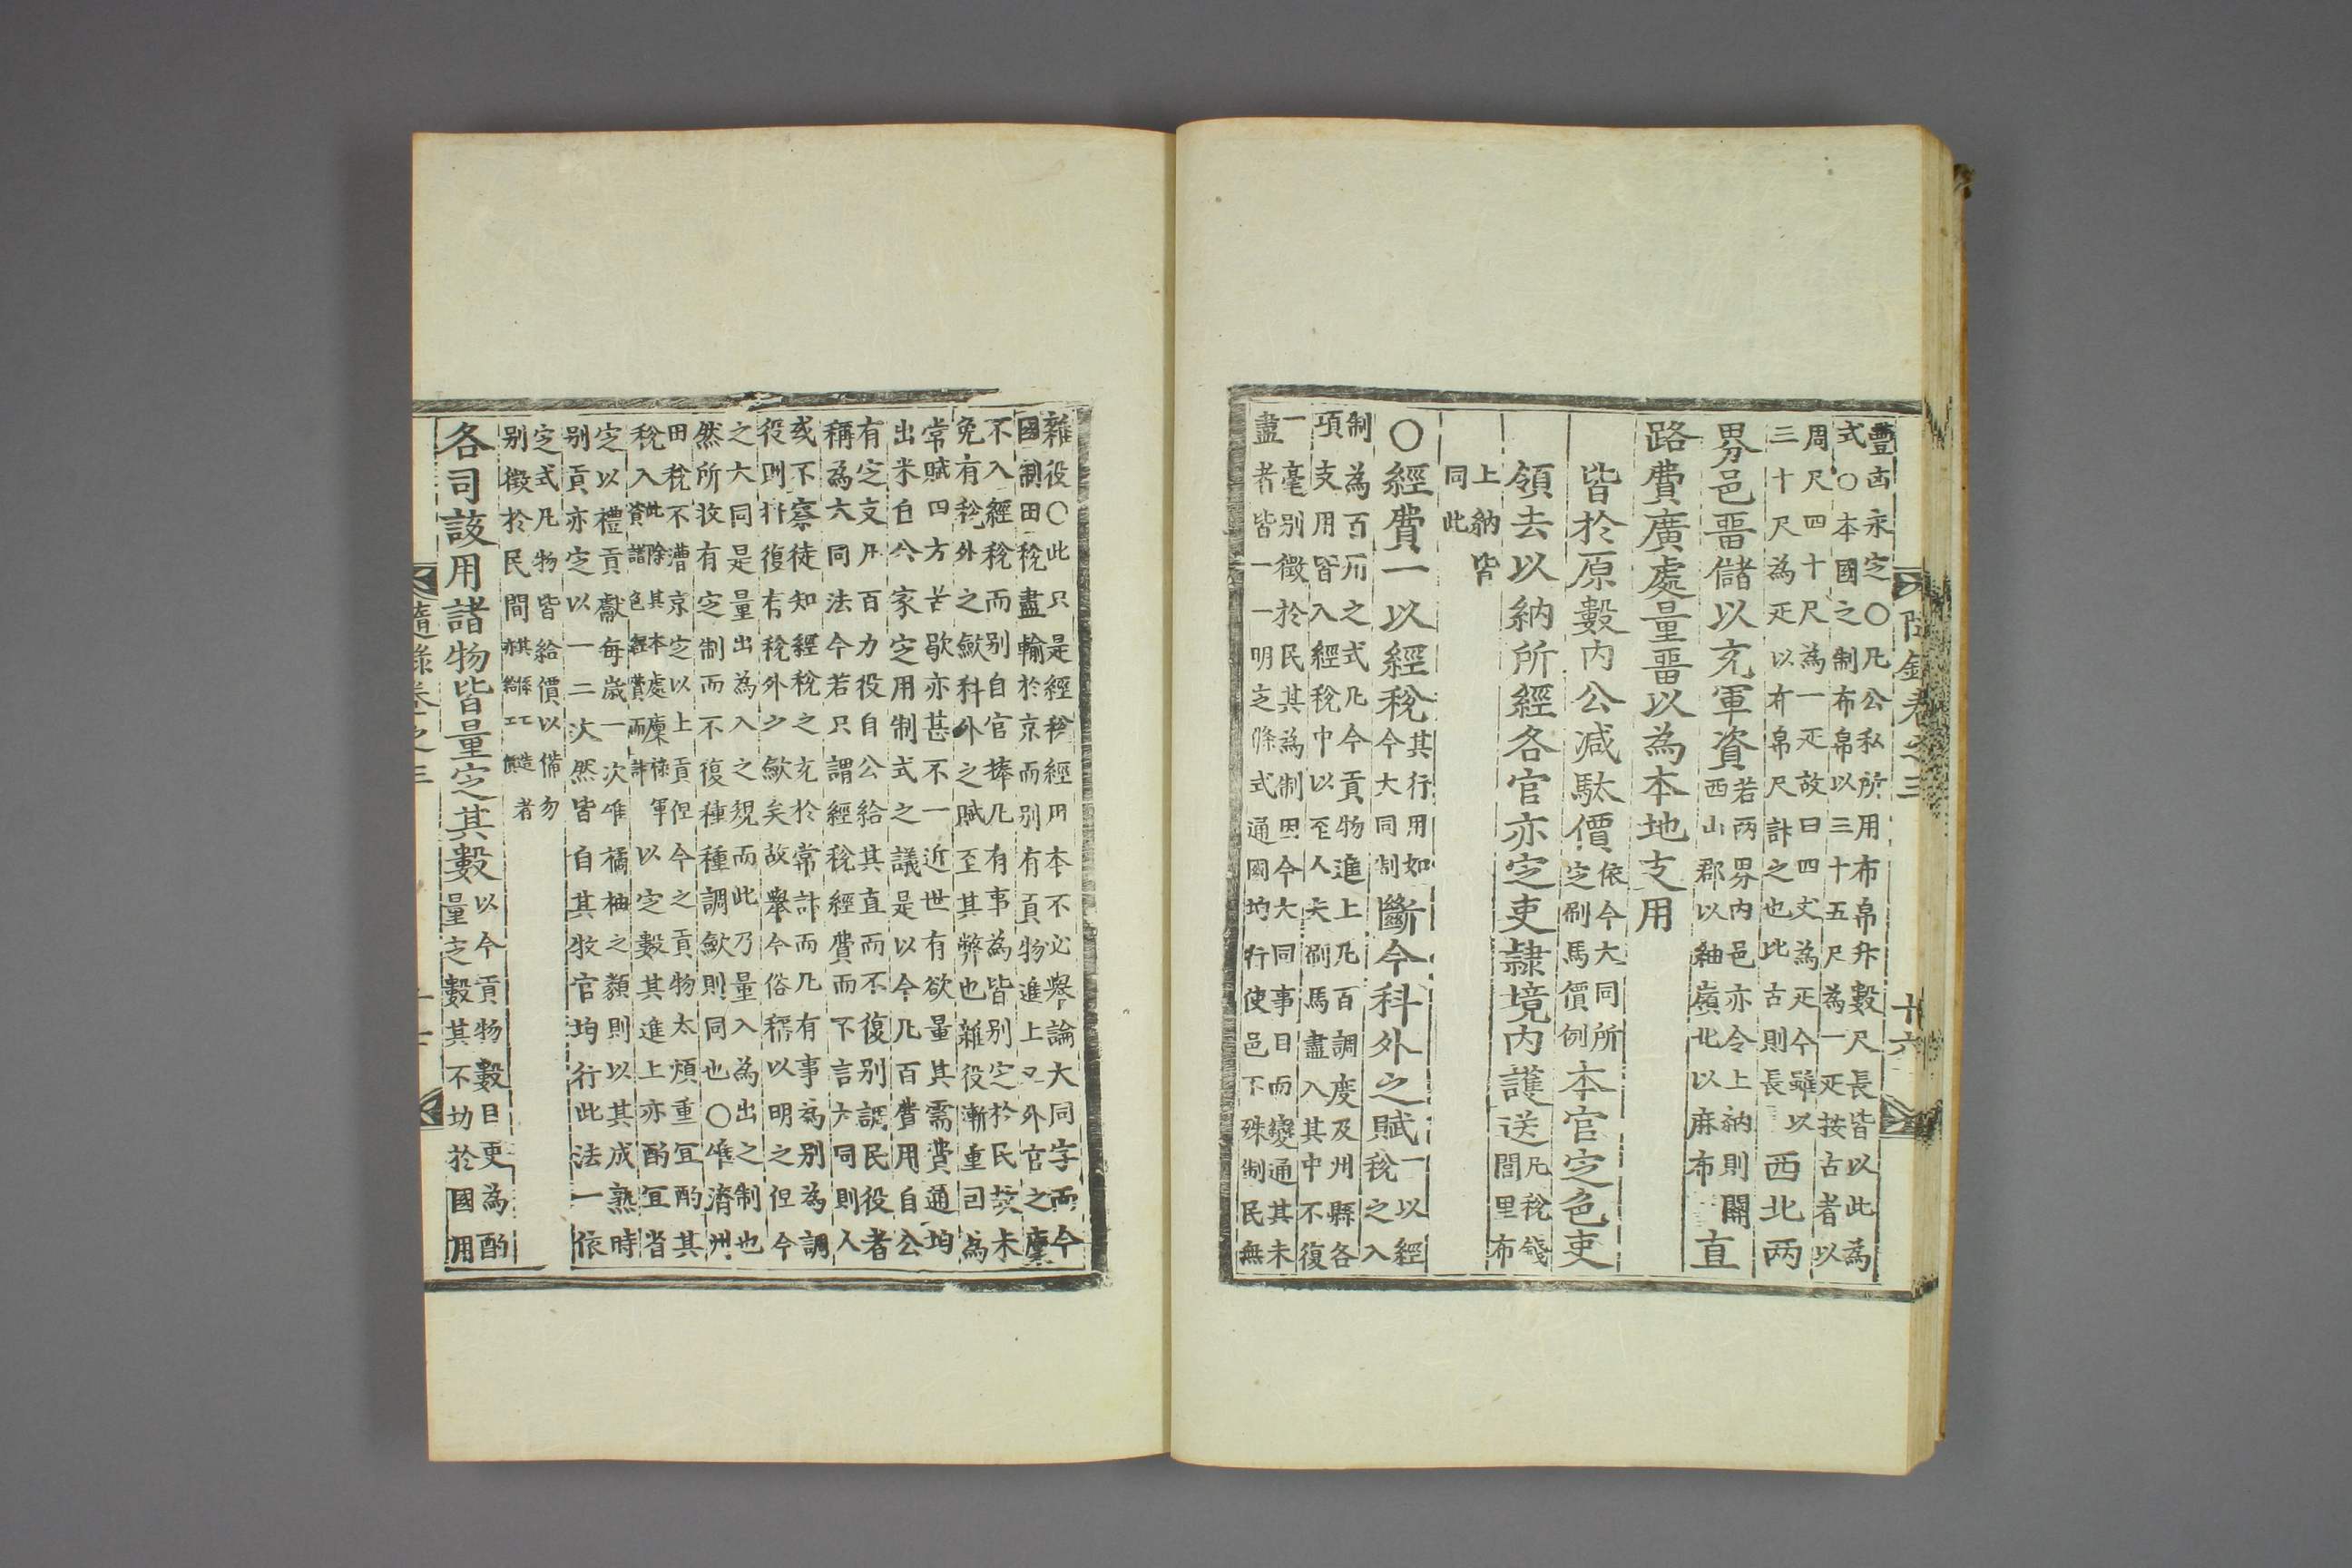 豐凶永定〇凡公私所用布帛升數尺長皆以此為
式〇本國之制布帛以三十五尺為一疋按古者以
周尺四十尺為一疋故曰四丈為疋今雖以
三十尺為疋以布帛尺計之也比古則長 西北兩
界邑畱儲以充軍資
若兩界內邑亦令上納則關
西山郡以紬嶺北以麻布
直
路費廣處量畱以為本地支用
皆於原數內公減駄價
依今大同所
定刷馬價例
本官定色吏
領去以納所經各官亦定吏隷境內護送
凡稅錢
閭里布
上納皆
同此
〇經費一以經稅
其行用如
今大同制
斷今科外之賦
一以經
稅之入
制為百用之式凡今貢物進上凡百調度及州縣各
項支用皆入經稅中以至人夫刷馬盡入其中不復
一毫別徵於民其為制因今大同事目而變通其未
盡者皆一一明之條式通國均行使邑不殊制民無
隨錄卷之三 十六
雜役〇此只是經稅經用本不必舉論大同字而今
國制田稅盡輸於京而別有貢物進上又外官之廩
不入經稅而別自官捧凡有事為皆別定於民故未
免有稅外之斂科外之賦至其弊也雜役漸重回為
常賦四方苦歇亦甚不一近世有欲量其需費通均
出米自公家定用制式之議是以今凡百費用自公
有定支凡百力役自公給其直而不復別調民役者
稱為大同法今若只謂經稅經費而不言大同則人
或不察徒知經稅之充於常計而凡有事為別為調
役則將復有稅外之斂矣故舉今俗稱以明之但今
之大同是量出為入之規而此乃量入為出之制也
然所收有定制而不復種種調斂則同也〇唯濟州
田稅不漕京定以上貢但今之貢物太煩重宜酌其
稅入
此除其本處廩祿軍
資諸色經費而計
以定數其進上亦酌宜省
定以禮貢獻每歲一次唯橘柚之類則以其成熟時
別貢亦定以一二次然皆自其牧官均行此法一依
定式凡物皆給價以備勿
別徵於民間
各司該用諸物皆量定其數
以今貢物數目更為酌
量之數其不切於國用
隨錄卷之三